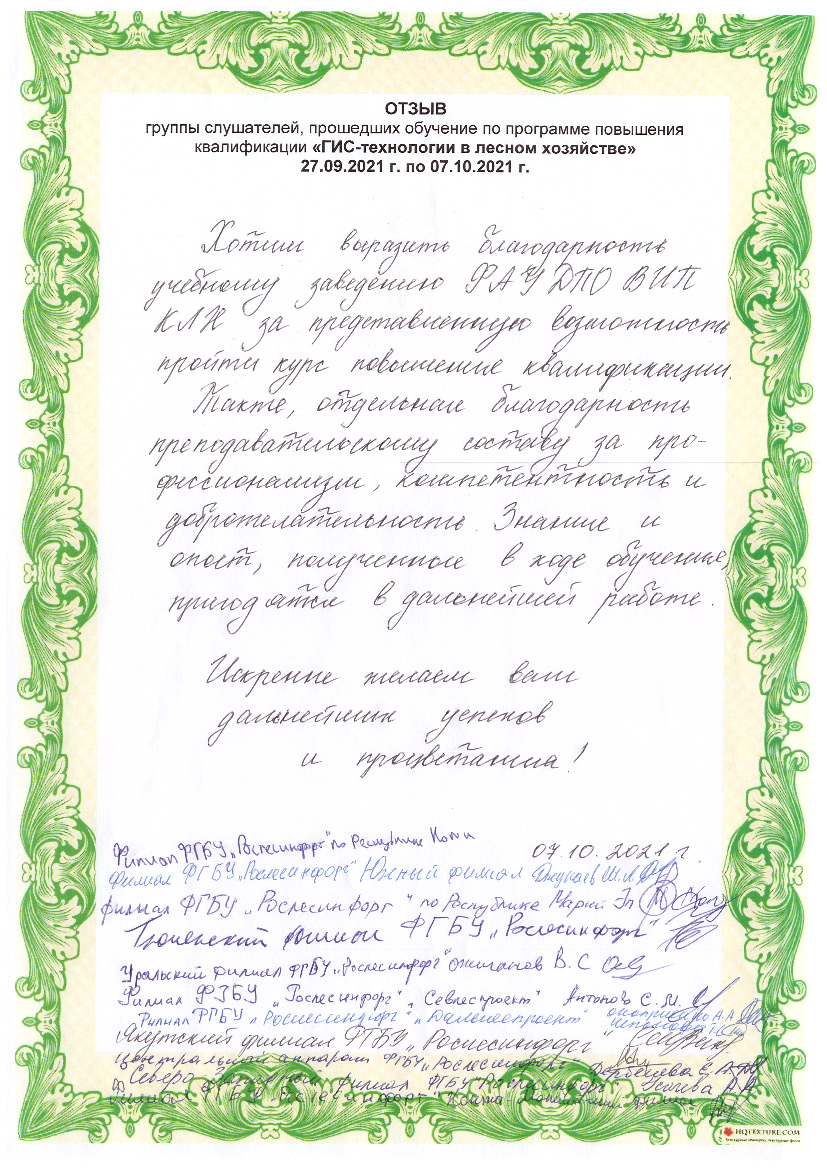 ОТЗЫВ
группы слушателей, прошедших обучение по программе повышения
квалификации «ГИС-технологии в лесном хозяйстве»
27.09.2021 г. по 07.10.2021 г.
Хотим выразить благодарность
учебному заведению ФАУ ДПО ВИП
КЛХ за представленную возможность
пройти курс повышения квалификации.
Также, отдельная благодарность
преподавательскому составу за про-
фессионализм, компетентность и
доброжелательность. Знание и
опыт, полученные в ходе обучения,
пригодятся в дальнейшей работе.
Искренне желаем вам
дальнейших успехов
и процветания!
Филиал ФГБУ „Рослесинфорг" по Республике Коми
07.10.2021 г.
Филиал ФГБУ „Рослесинфорг" Южный филиал
филиал ФГБУ „Рослесинфорг" по Республике Марий Эл
Тюменский филиал ФГБУ „Рослесинфорг"
Уральский филиал ФГБУ „Рослесинфорг" Ожиганов В.С
Филиал ФГБУ „Рослесинфорг" „Севлеспроект" Антонов С.М.
Филиал ФГБУ „Рослесинфорг" „Дальлеспроект"
Якутский филиал ФГБУ „Рослесинфорг"
Центральный аппарат ФГБУ „Рослесинфорг"
Северо-Западный филиал ФГБУ "Рослесинфорг"
филиал ФГБУ "Рослесинфорг" Ханты-Мансийский филиал
HQTEXTURE.COM